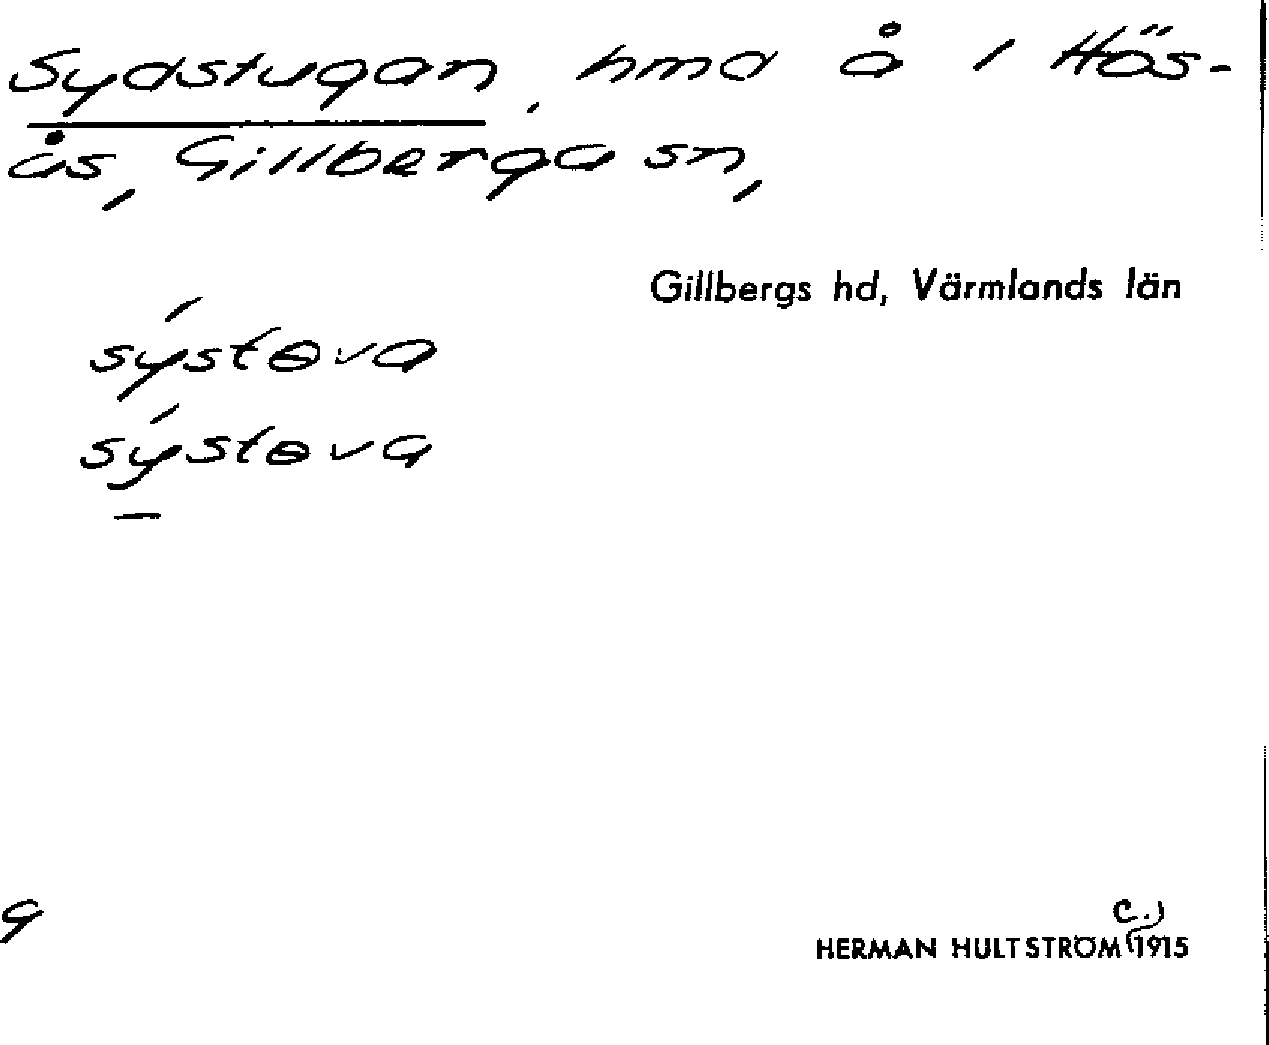 Sydstugan, hmd å 1 Hös-
ås, Gillberga sn,
Gillbergs hd, Värmlands län
sýstɵva
sýstɵva
HERMAN HULTSTRÖM (c.) 1915